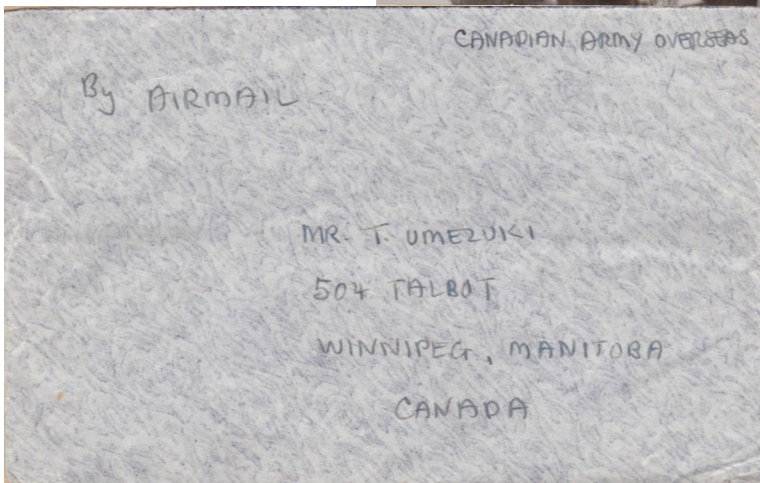 CANADIAN ARMY OVERSEAS
By AIRMAIL
MR. T. UMEZUKI
504 TALBOT
WINNIPEG, MANITOBA
CANADA